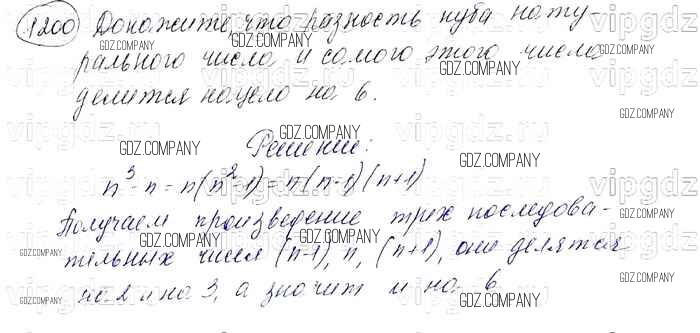 1200 Докажите, что разность куба нату-
рального числа и самого этого числа
делится нацело на 6.
Решение:
n³-n = n(n²-1) = n(n-1)(n+1)
Получаем произведение трех последова-
тельных чисел (n-1), n, (n+1), они делятся
на 2 и на 3, а значит и на 6